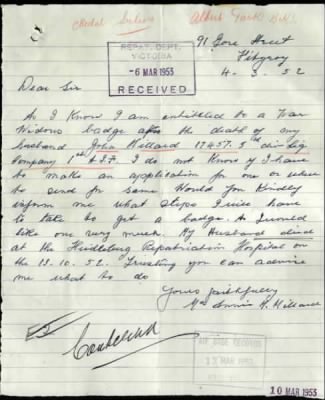 Medal
91 Gore Street
Fitzroy
4. 3. 52
REPAT. DEPT.
VICTORIA
- 6 MAR 1953
RECEIVED
Dear Sir
As I know I am entitled to a War
Widows badge after the death of my
husband John Millard 17457. 5th div Sig
Company 1st A.I.F. I do not know if I have
to make an application for one or where
to send for same Would you kindly
inform me what steps I will have
to take to get a badge. As I would
like one very much. My Husband died
at the Heidelberg Repatriation Hospital on
the 13. 10. 52. Trusting you can advise
me what to do
Yours faithfully
Mrs Annie K. Millard
BASE RECORDS
12 MAR 1953
10 MAR 1953